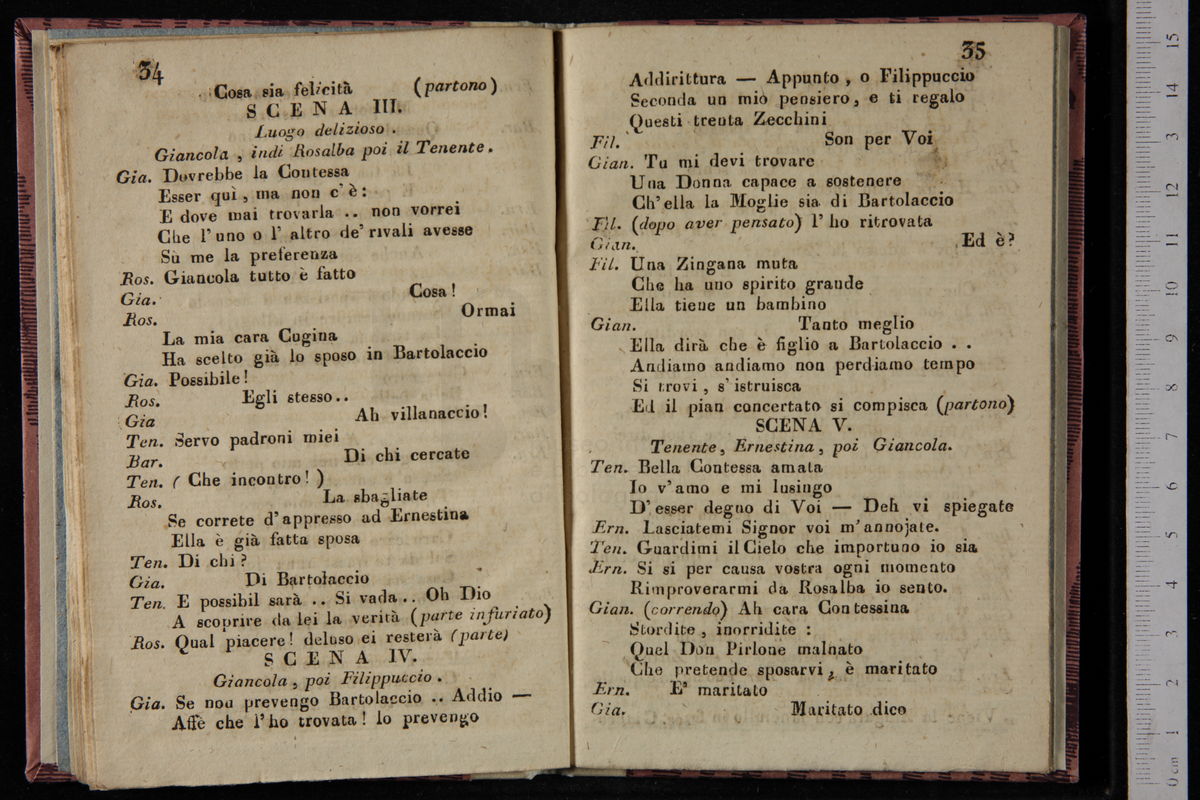 34
Cosa sia felicità (partono)
SCENA III.
Luogo delizioso .
Giancola , indi Rosalba poi il Tenente.
Gia. Dovrebbe la Contessa
Esser quì , ma non c'è :
E dove mai trovarla .. non vorrei
Che l'uno o l' altro de' rivali avesse
Su me la preferenza
Ros. Giancola tutto è fatto
Gia. Cosa !
Ros. Ormai
La mia cara Cugina
Ha scelto già lo sposo in Bartolaccio
Gia. Possibile !
Ros. Egli stesso..
Gia Ah villanaccio !
Ten. Servo padroni miei
Bar. Di chi cercate
Ten. ( Che incontro ! )
Ros. La sbagliate
Se correte d'appresso ad Ernestina
Ella è già fatta sposa
Ten. Di chi ?
Gia. Di Bartolaccio
Ten. E possibil sarà .. Si vada .. Oh Dio
A scoprire da lei la verità (parte infuriato)
Ros. Qual piacere ! deluso ei resterà (parte)
SCENA IV.
Giancola , poi Filippuccio .
Gia. Se non prevengo Bartolaccio .. Addio —
Affè che l'ho trovata ! Io prevengo
35
Addirittura — Appunto , o Filippuccio
Seconda un mio pensiero, e ti regalo
Questi trenta Zecchini
Fil. Son per Voi
Gian. Tu mi devi trovare
Una Donna capace a sostenere
Ch'ella la Moglie sia di Bartolaccio
Fil. (dopo aver pensato) l' ho ritrovata
Gian. Ed è?
Fil. Una Zingana muta
Che ha uno spirito grande
Ella tiene un bambino
Gian. Tanto meglio
Ella dirà che è figlio a Bartolaccio . .
Andiamo andiamo non perdiamo tempo
Si trovi , s'istruisca
Ed il pian concertato si compisca (partono)
SCENA V.
Tenente, Ernestina, poi Giancola.
Ten. Bella Contessa amata
Io v'amo e mi lusingo
D' esser degno di Voi — Deh vi spiegate
Ern. Lasciatemi Signor voi m'annojate.
Ten. Guardimi il Cielo che importuno io sia
Ern. Si si per causa vostra ogni momento
Rimproverarmi da Rosalba io sento.
Gian. (correndo) Ah cara Contessina
Stordite , inorridite :
Quel Don Pirlone malnato
Che pretende sposarvi, è maritato
Ern. E' maritato
Gia. Maritato dico